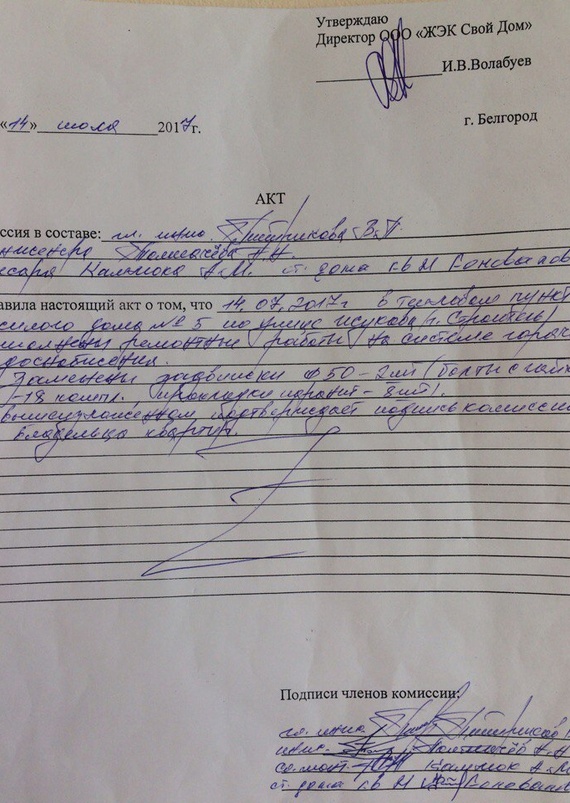 Утверждаю
Директор ООО «ЖЭК Свой Дом»
И.В.Волабуев
«14» июля 2017г.
г. Белгород
АКТ
ссия в составе: гл. инж. В.П.
нженера Толмачёва Н.Н.
есаря Калмыка А.М. ст. дома кв
авила настоящий акт о том, что 14.07.2017г в тепловом пункт
илого дома № 5 по улице (г. Строитель)
полнены ремонтные работы на системе горяч
доснабжения.
Заменены задвижки Ф50-2шт (болты с гайк
-18 компл. прокладки паранит-8шт).
вышеизложенном подтверждает подпись комиссии
владельца квартир.
Подписи членов комиссии:
гл. инж
инж. Толмачёв Н.Н.
Калмык А.М
ст. дома кв